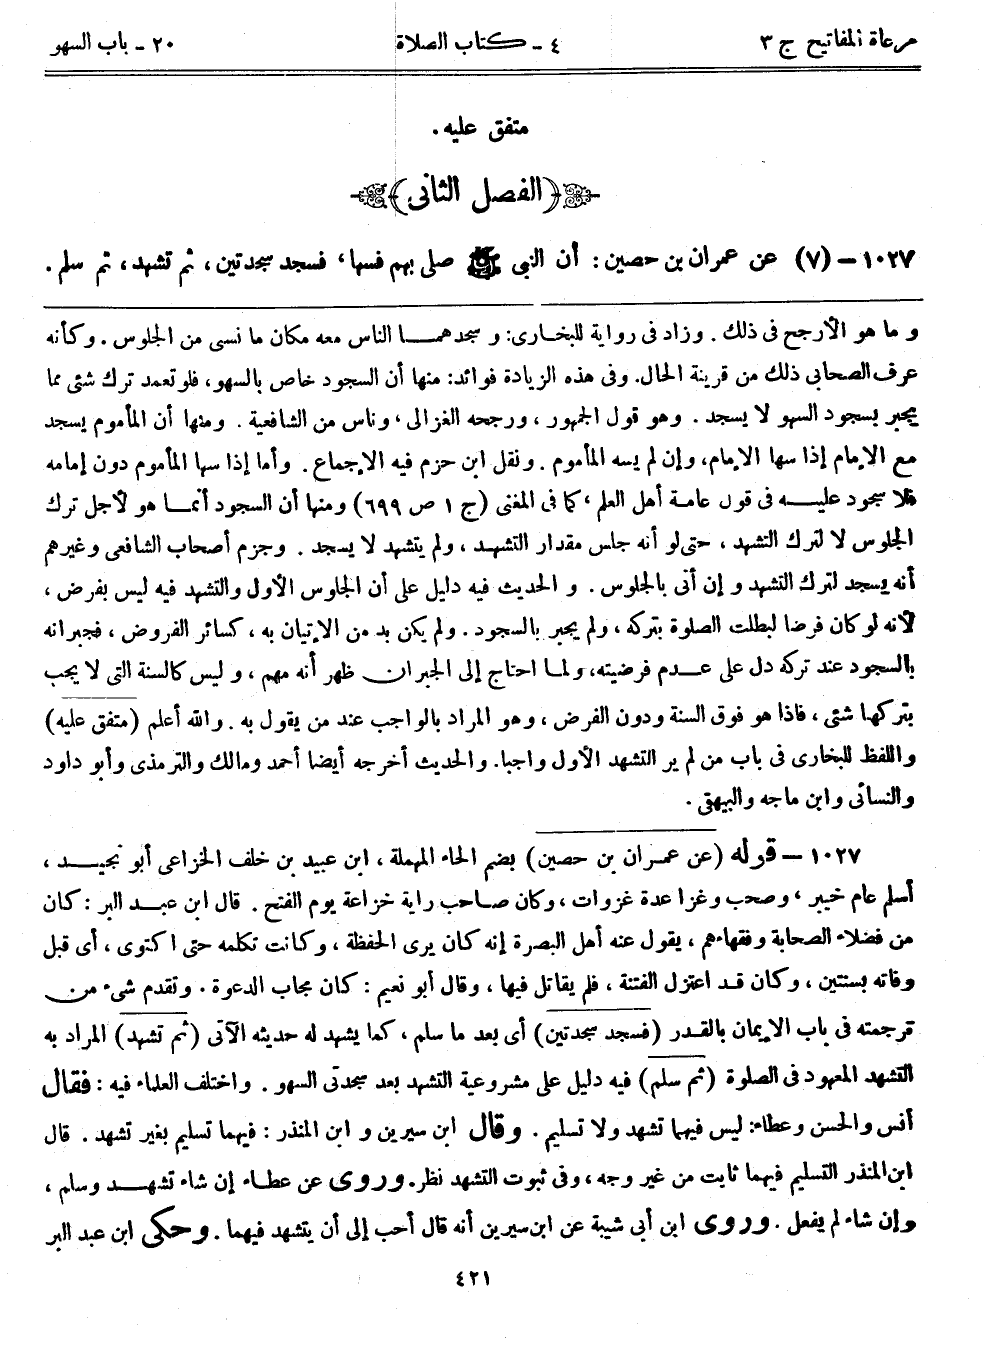 مرعاة المفاتيح ج ٣ ٤ - كتاب الصلاة ٢٠ - باب السهو
متفق عليه .
﴿ الفصل الثانى ﴾
١٠٢٧ – (٧) عن عمران بن حصين : أن النبى ﷺ صلى بهم فسها ، فسجد سجدتين ، ثم تشهد ، ثم سلم .
و ما هو الأرجح فى ذلك . وزاد فى رواية للبخارى: و سجدهمـــا الناس معه مكان ما نسى من الجلوس . وكأنه
عرف الصحابى ذلك من قرينة الحال. وفى هذه الزيادة فوائد: منها أن السجود خاص بالسهو، فلو تعمد ترك شئى مما
يجبر بسجود السهو لا يسجد . وهو قول الجمهور ، ورجحه الغزالى ، وناس من الشافعية . ومنها أن المأموم يسجد
مع الإمام إذا سها الإمام، وإن لم يسه المأموم . ونقل ابن حزم فيه الإجماع . وأما إذا سها المأموم دون إمامه
فلا سجود عليـــه فى قول عامة أهل العلم ، كما فى المغنى (ج ١ ص ٦٩٩) ومنها أن السجود أنمـــا هو لأجل ترك
الجلوس لا لترك التشهد ، حتى لو أنه جلس مقدار التشهد ، ولم يتشهد لا يسجد . وجزم أصحاب الشافعى وغيرهم
أنه يسجد لترك التشهد و إن أتى بالجلوس . و الحديث فيه دليل على أن الجلوس الأول والتشهد فيه ليس بفرض ،
لأنه لو كان فرضا لبطلت الصلوة بتركه ، ولم يجبر بالسجود . ولم يكن بد من الإتيان به ، كسائر الفروض ، فجبرانه
بالسجود عند تركه دل على عـــدم فرضيته، ولمـا احتاج إلى الجبران ظهر أنه مهم ، و ليس كالسنة التى لا يجب
بتركها شئى ، فاذا هو فوق السنة ودون الفرض ، وهو المراد بالواجب عند من يقول به . والله أعلم (متفق عليه)
واللفظ للبخارى فى باب من لم ير التشهد الأول واجبا. والحديث أخرجه أيضا أحمد ومالك والترمذى وأبو داود
والنسائى وابن ماجه والبيهقى .
١٠٢٧ – قوله (عن عمـران بن حصين) بضم الحاء المهملة ، ابن عبيد بن خلف الخزاعى أبو نجيـــد ،
أسلم عام خيبر ، وصحب وغزا عدة غزوات ، وكان صـاحب راية خزاعة يوم الفتح . قال ابن عبـد البر : كان
من فضلاء الصحابة وفقهاءهم ، يقول عنه أهل البصرة إنه كان يرى الحفظة ، وكانت تكلمه حتى اكتوى ، أى قبل
وفاته بسنتين ، وكان قـد اعتزل الفتنة ، فلم يقاتل فيها ، وقال أبو نعيم : كان مجاب الدعوة . وتقدم شىء مـن
ترجمته فى باب الإيمان بالقدر (فسجد سجدتين) أى بعد ما سلم ، كما يشهد له حديثه الآتى (ثم تشهد) المراد به
التشهد المعهود فى الصلوة (ثم سلم) فيه دليل على مشروعية التشهد بعد سجدتى السهو . واختلف العلماء فيه : فقال
أنس والحسن وعطاء: ليس فيهما تشهد ولا تسليم . وقال ابن سيرين و ابن المنذر : فيهما تسليم بغير تشهد . قال
ابن المنذر التسليم فيهما ثابت من غير وجه ، وفى ثبوت التشهد نظر. وروى عن عطـاء إن شاء تشهـــد وسلم ،
وإن شاء لم يفعل . وروى ابن أبى شيبة عن ابن سيرين أنه قال أحب إلى أن يتشهد فيهما . وحكى ابن عبد البر
٤٢١